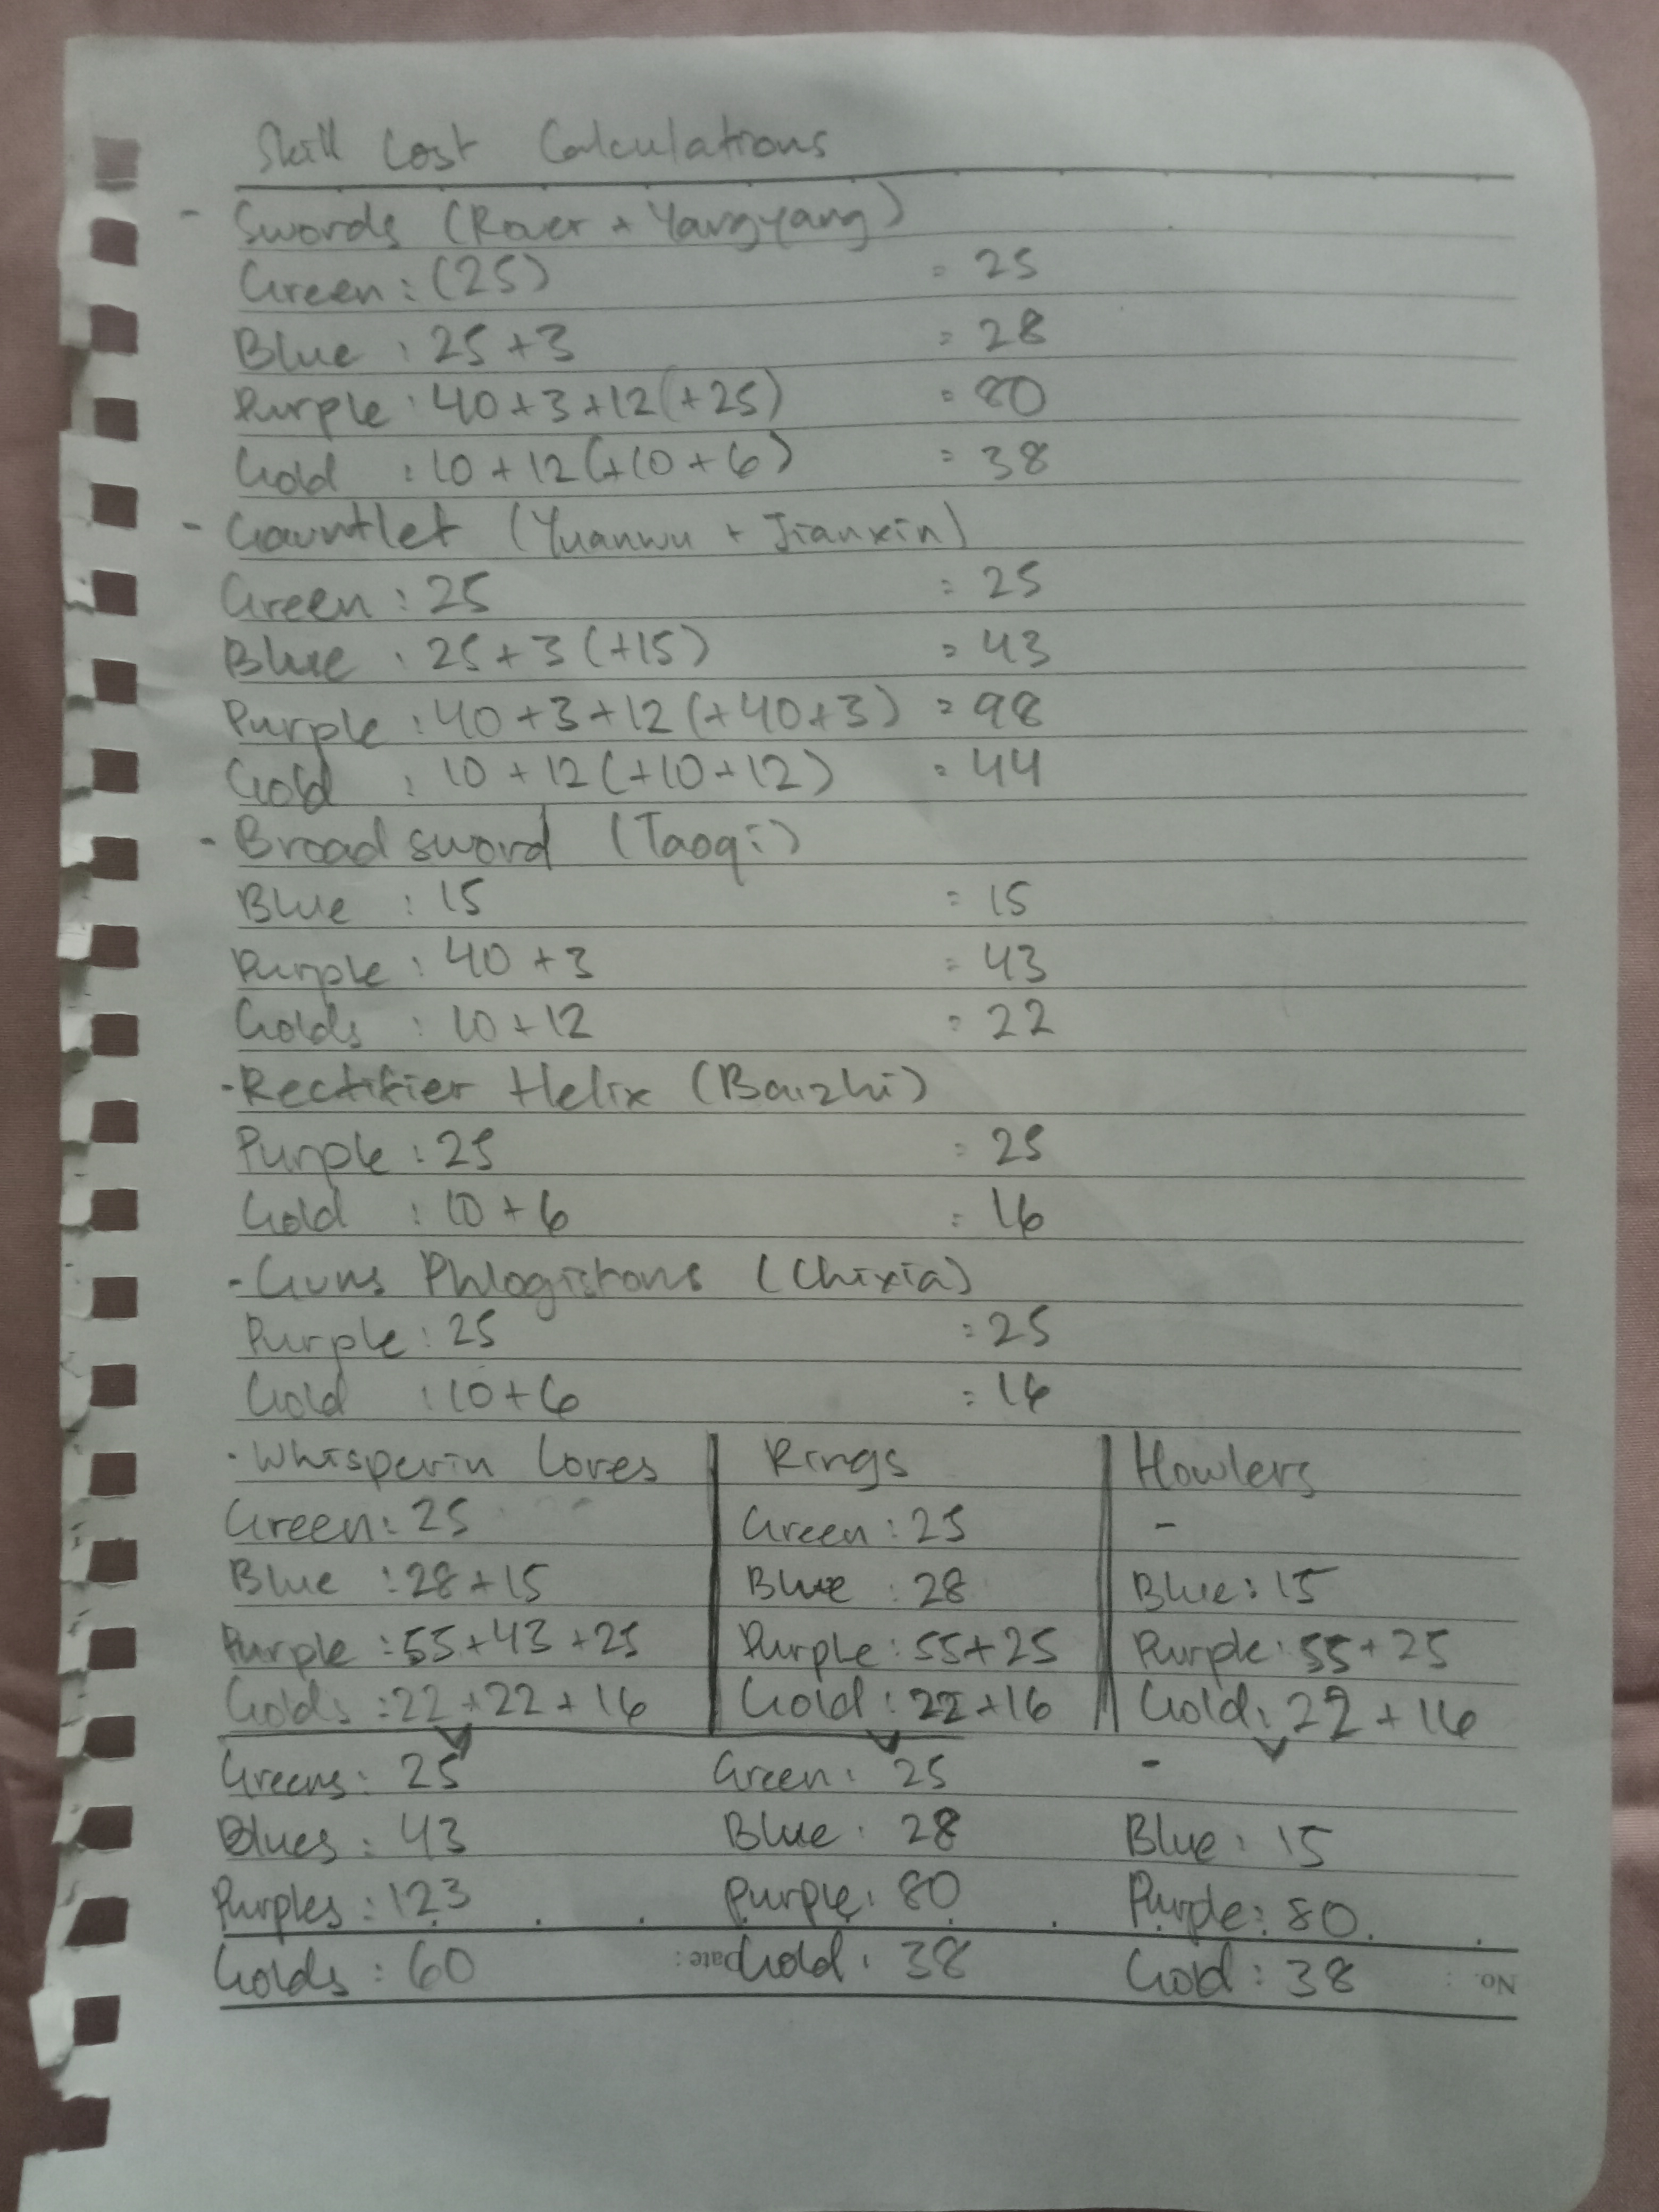 Skill Cost Calculations
- Swords (Rover + Yangyang)
Green : (25) = 25
Blue : 25 + 3 = 28
Purple : 40 + 3 + 12 (+25) = 80
Gold : 10 + 12 (+10 + 6) = 38
- Gauntlet (Yuanwu + Jianxin)
Green : 25 = 25
Blue : 25 + 3 (+15) = 43
Purple : 40 + 3 + 12 (+40 + 3) = 98
Gold : 10 + 12 (+10 + 12) = 44
- Broadsword (Taoqi)
Blue : 15 = 15
Purple : 40 + 3 = 43
Golds : 10 + 12 = 22
- Rectifier Helix (Baizhi)
Purple : 25 = 25
Gold : 10 + 6 = 16
- Guns Phlogistons (Chixia)
Purple : 25 = 25
Gold : 10 + 6 = 16
- Whisperin Cores Rings Howlers
Green : 25 Green : 25 -
Blue : 28 + 15 Blue : 28 Blue : 15
Purple : 55 + 43 + 25 Purple : 55 + 25 Purple : 55 + 25
Golds : 22 + 22 + 16 Gold : 22 + 16 Gold : 22 + 16
Greens : 25 Green : 25 -
Blues : 43 Blue : 28 Blue : 15
Purples : 123 Purple : 80 Purple : 80
Golds : 60 Date : Gold : 38 Gold : 38 No. :